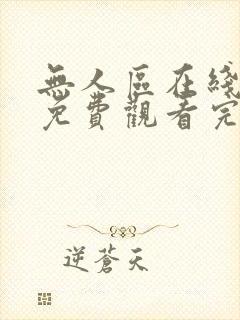 無人區在綫
免費觀看完
逆蒼天